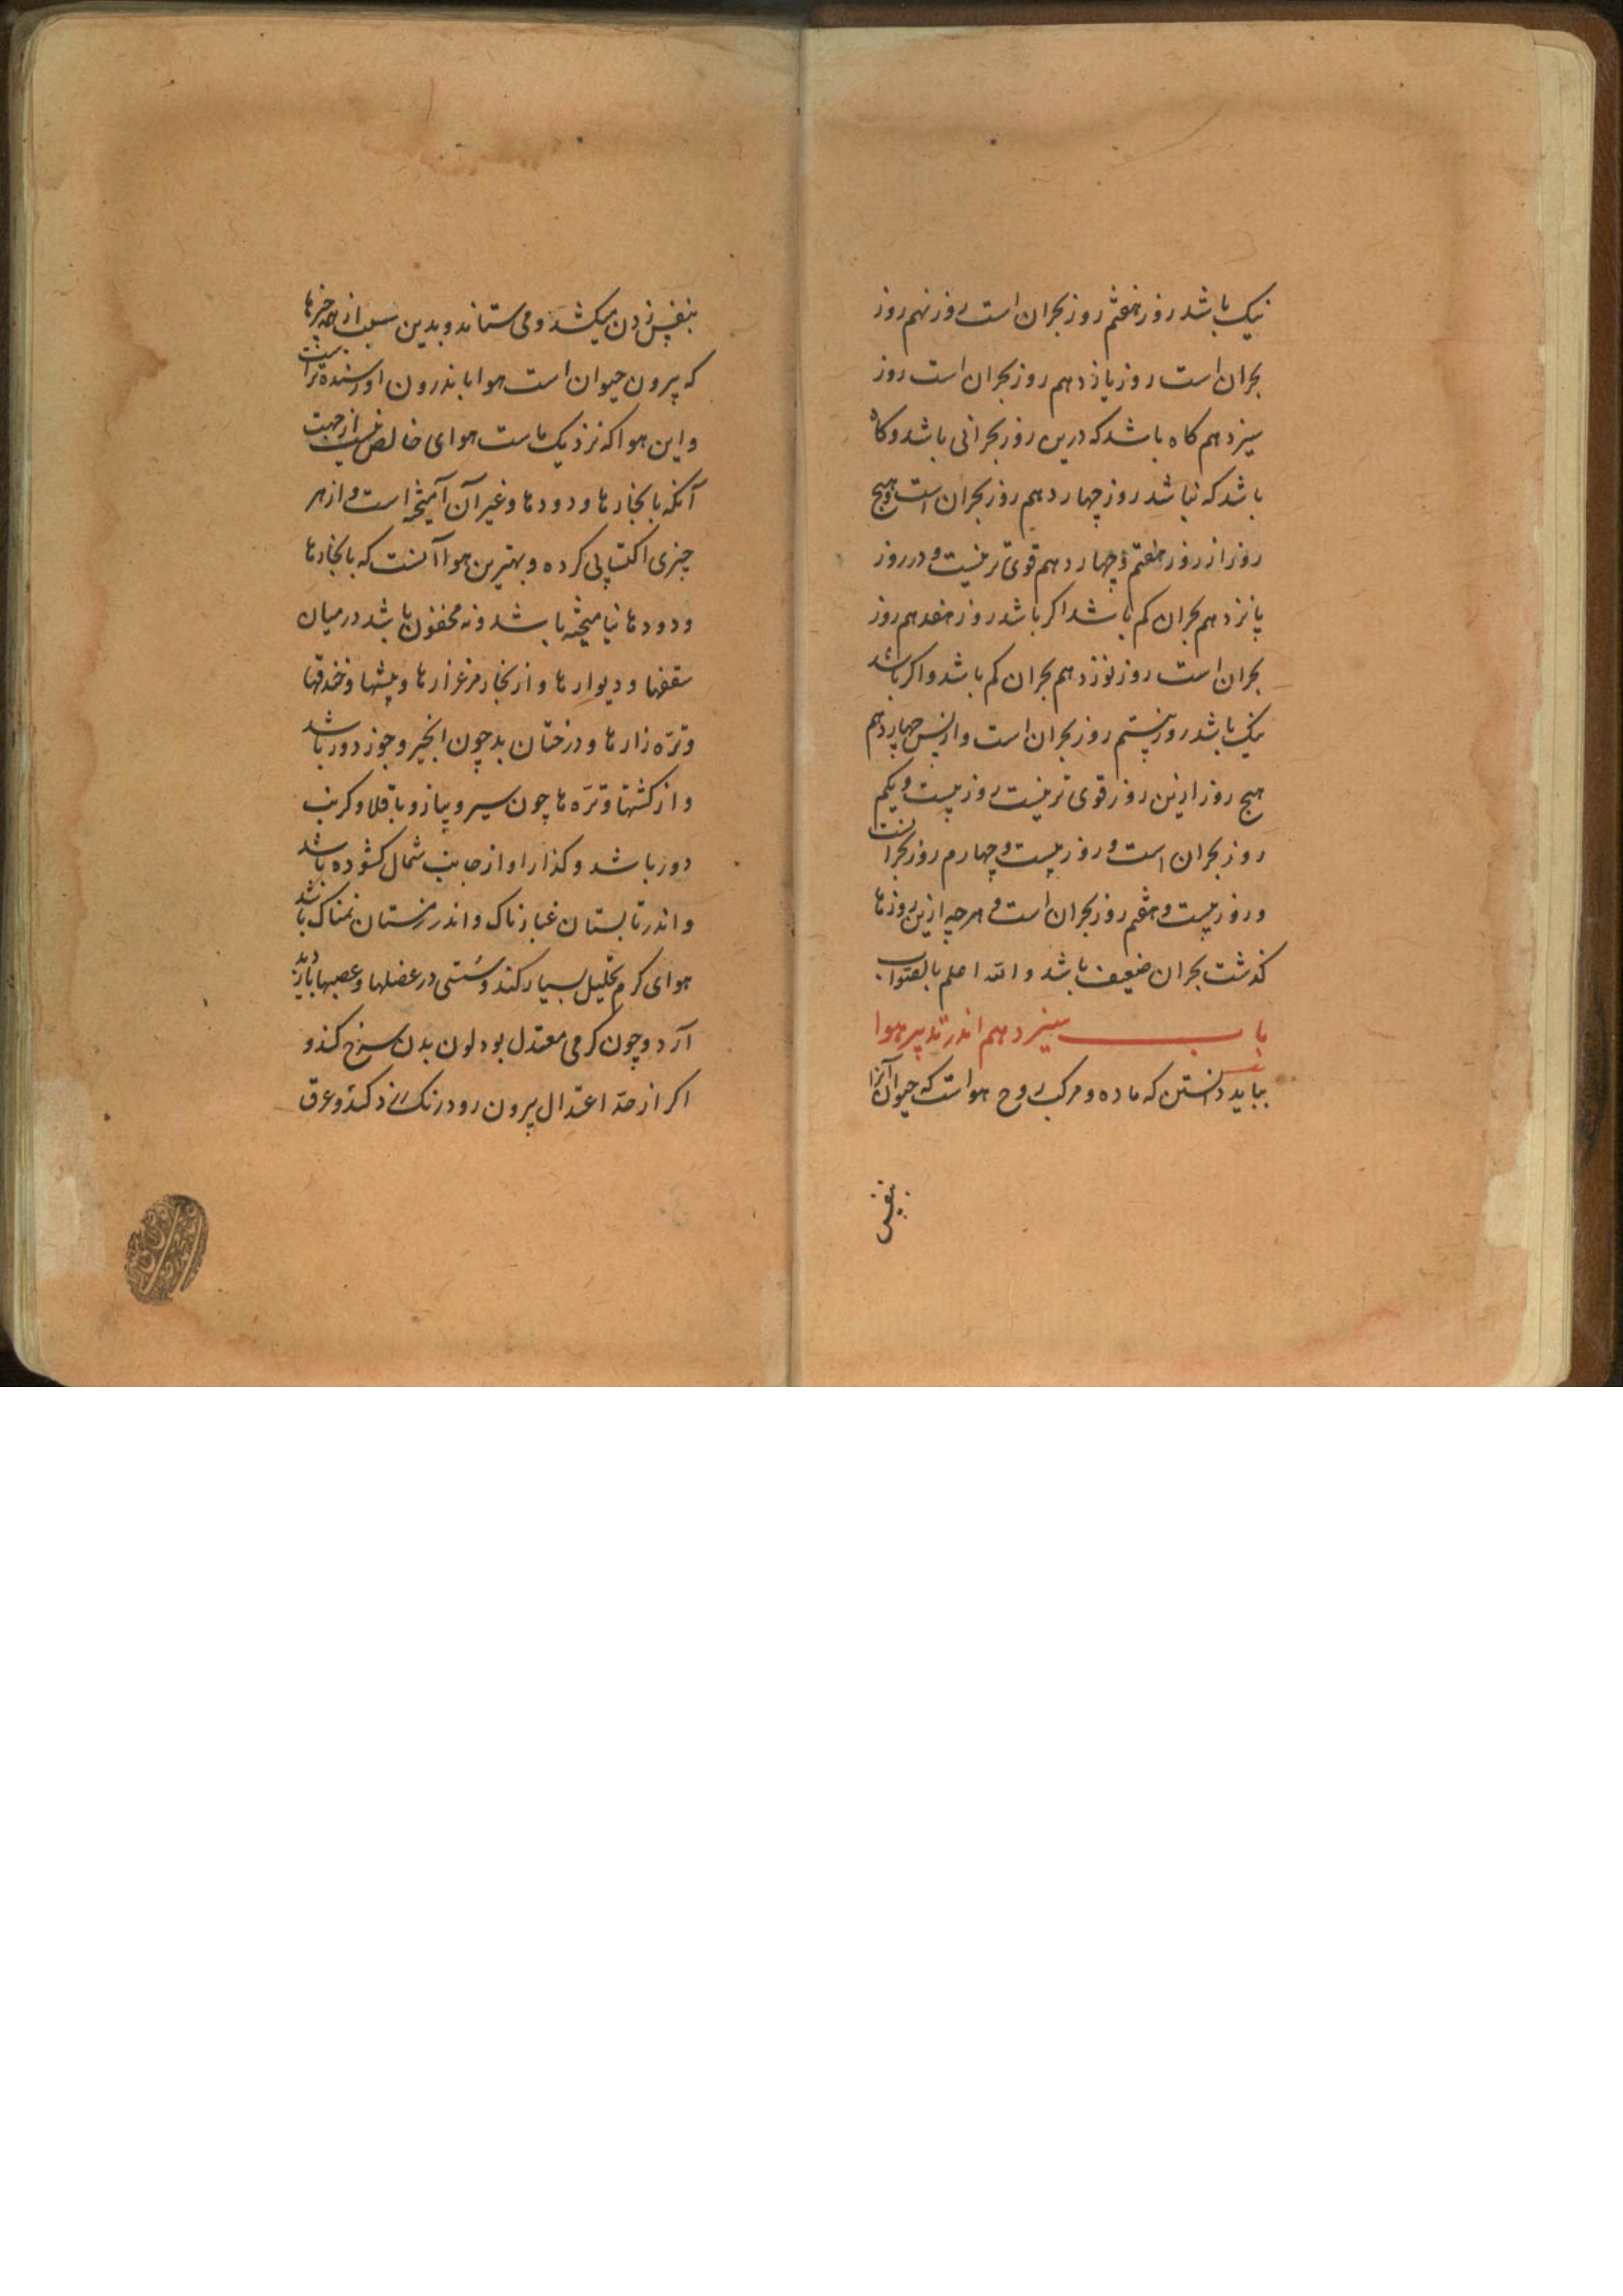 نیک باشد روز هفتم روز بحران است روز نهم روز
بحران است روز یازدهم روز بحران است روز
سیزدهم کاه باشد که درین روز بحرانی باشد و کاه
باشد که نباشد روز چهاردهم روز بحران است و هیج
روز از روز هفتم و چهاردهم قوی تر نیست و در روز
پانزدهم بحران کم باشد اکر باشد روز هفدهم روز
بحران است روز نوزدهم بحران کم باشد و اکر باشد
نیک باشد روز بیستم روز بحران است و از پس چهاردهم
هیج روز ازین روز قوی تر نیست روز بیست و یکم
روز بحران است و روز بیست و چهارم روز بحرانست
و روز بیست و هفتم روز بحران است و هرچه ازین روزها
کذشت بحران ضعیف باشد و الله اعلم بالصواب
باب سیزدهم اندر تدبیر هوا
بباید دانستن که ماده و مرکب روح هواست که حیوان آنرا
بنفس
بنفس زدن میکشد و می ستاند و بدین سبب از همه چیزها
که بیرون حیوان است هوا باندرون او رسنده تر است
و این هوا که نزدیک ماست هوای خالص نیست از جهت
آنکه با بخارها و دودها و غیر آن آمیخته است و از هر
چیزی اکتسابی کرده و بهترین هوا آنست که با بخارها
و دودها نیامیخته باشد و نه محقون باشد در میان
سقفها و دیوارها و از بخار مرغزارها و بیشها و خندقها
و تره زارها و درختان بد چون انجیر و جوز دور باشد
و از کشتها و تره ها چون سیر و پیاز و باقلا و کرنب
دور باشد و کذار او از جانب شمال کشوده باشد
و اندر تابستان غبارناک و اندر زمستان نمناک باشد
هوای کرم تحلیل بسیار کند و سستی در عضلها و عصبها پدید
آرد و چون کرمی معتدل بود لون بدن سرخ کند و
اکر از حد اعتدال بیرون رود رنک زرد کند و عرق